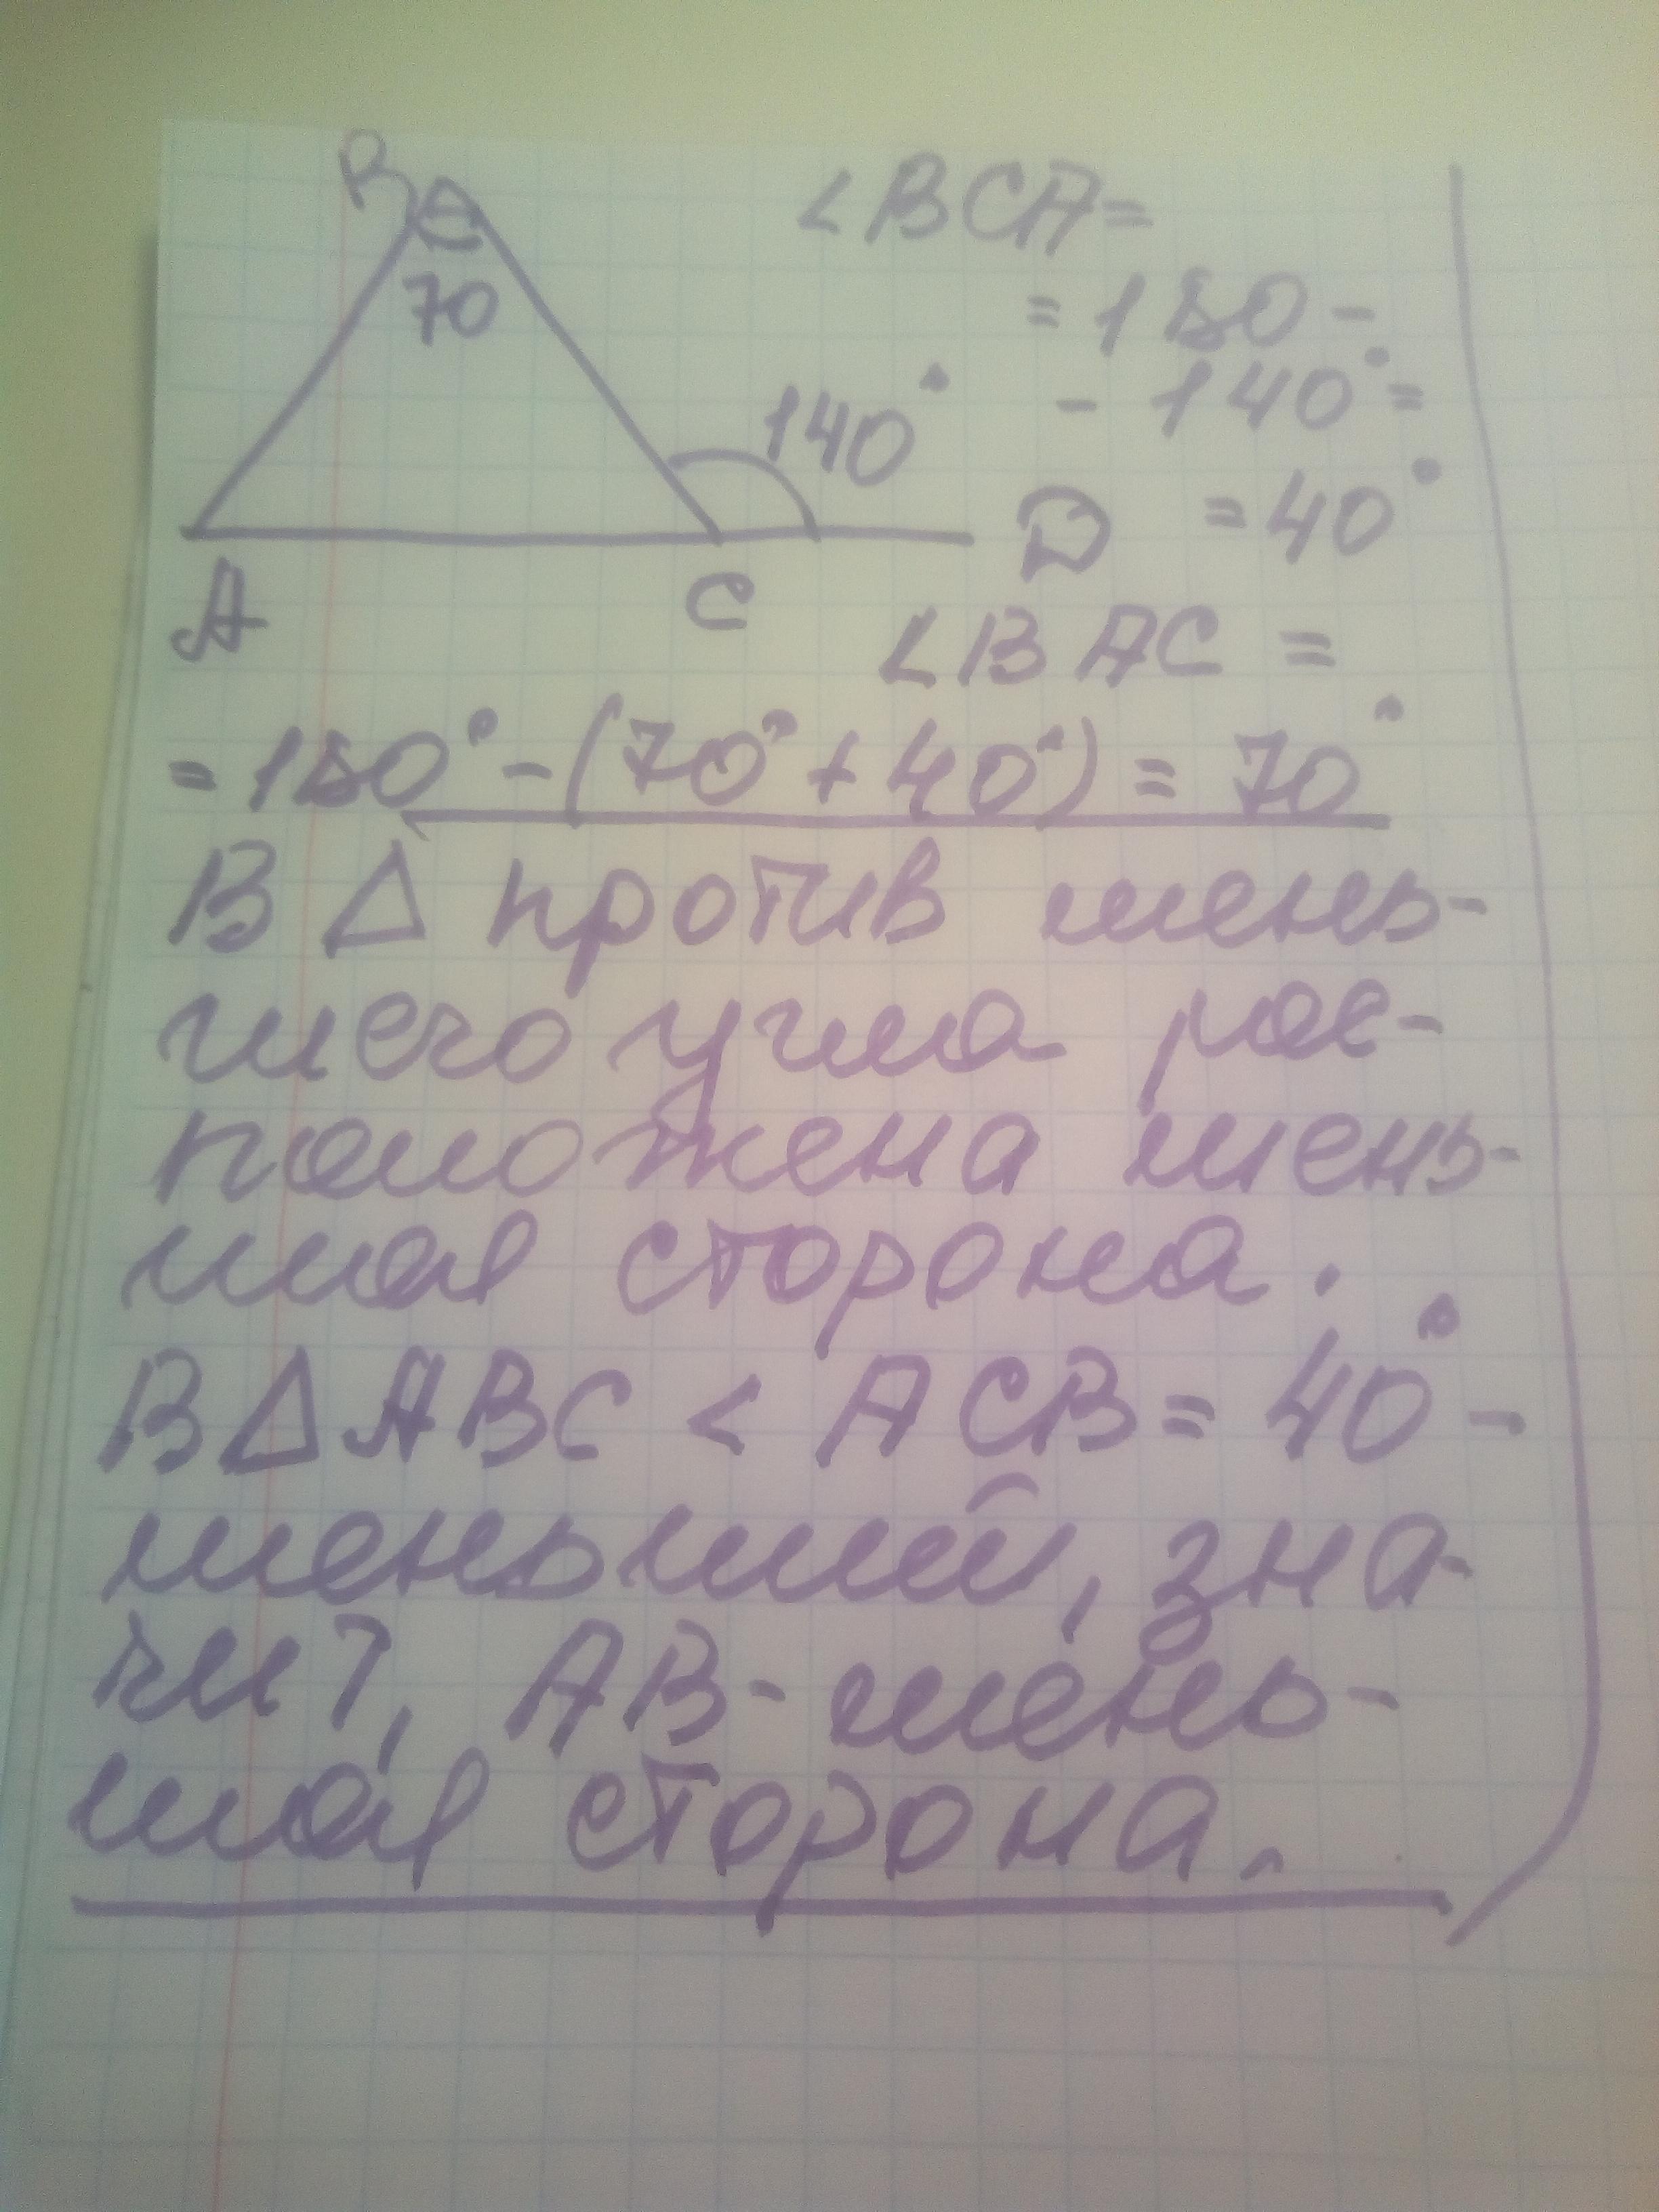 B
70
140°
A
C
D
<BCA=
=180-
-140°=
=40°
<BAC=
=180°-(70°+40°)=70°
В Δ против мень-
шего угла рас-
положена мень-
шая сторона.
В Δ ABC < ACB=40°-
меньший, зна-
чит, AB-мень-
шая сторона.